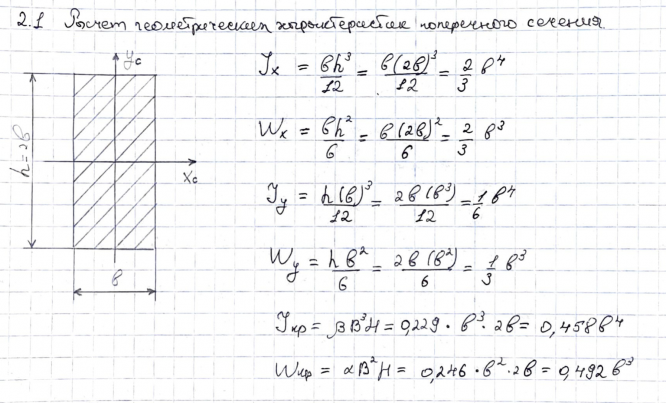 2.1 Расчет геометрических характеристик поперечного сечения
yc
h=2b
xc
b
Jx = bh³/12 = b(2b)³/12 = 2/3 b⁴
Wx = bh²/6 = b(2b)²/6 = 2/3 b³
Jy = h(b)³/12 = 2b(b³)/12 = 1/6 b⁴
Wy = hb²/6 = 2b(b²)/6 = 1/3 b³
Jкр = βB³H = 0,229 · b³ · 2b = 0,458b⁴
Wкр = αB²H = 0,246 · b² · 2b = 0,492b³